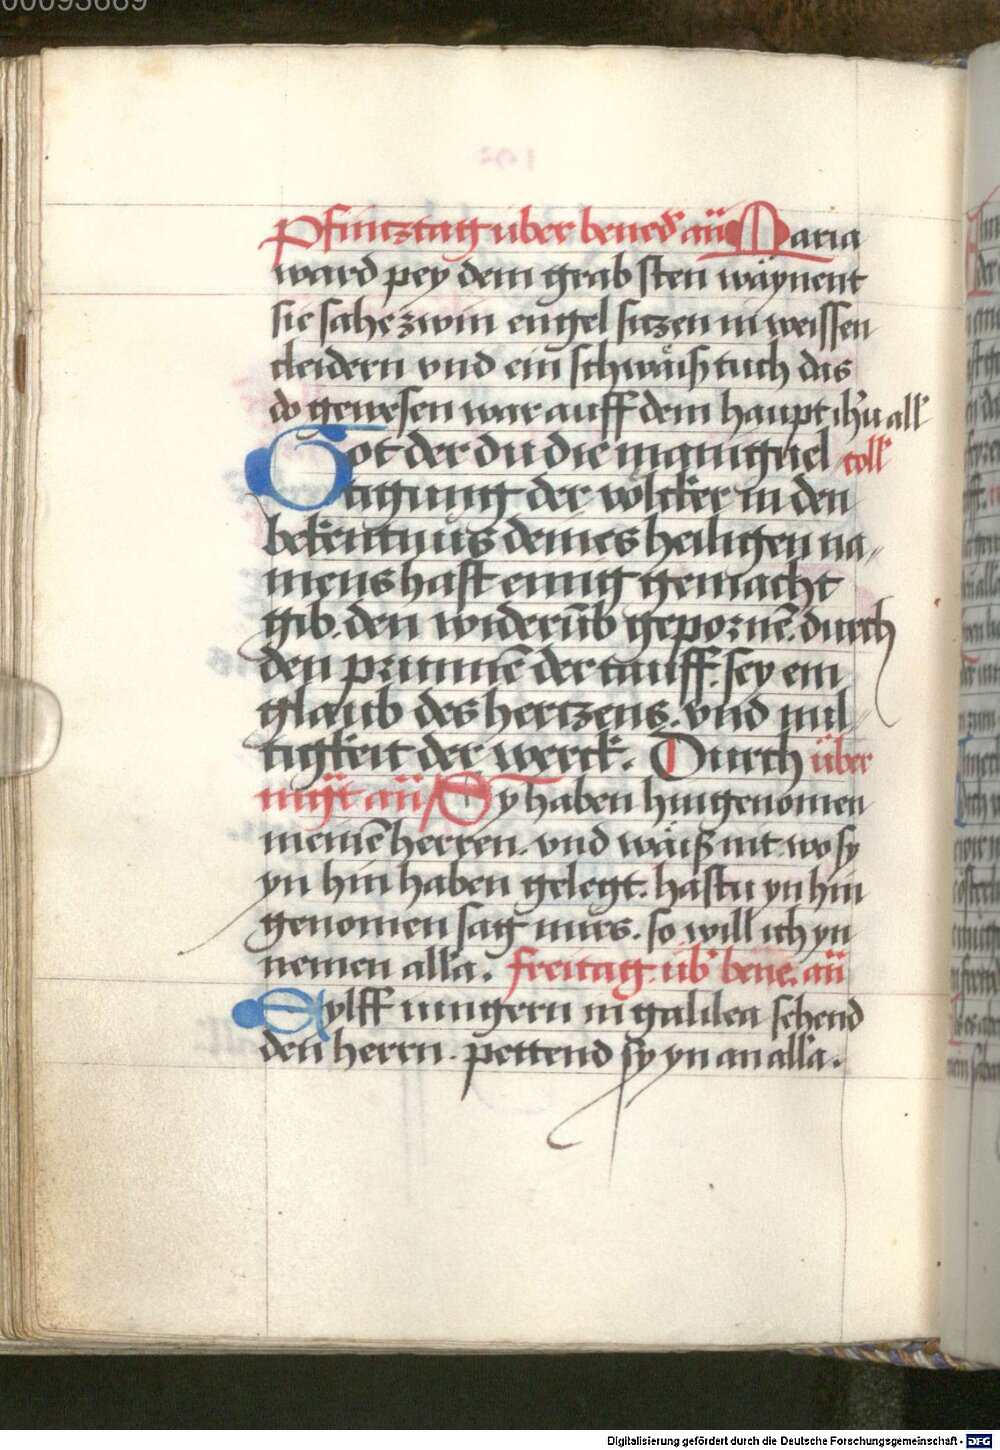 00093669
Pfintztag uber bened' aū Maria
ward pey dem grab sten waynent
sie sahe zwin engel sitzen in weissen
cleidern vnd ein schwaiſs tuch das
do gewesen war auff dem haupt ih'u all'
Got der du die manigueͤl coll'
tigung der volcker in den
bekentnus deines heiligen na„
mens hast einig gemacht
gib. den widerūb gepornē. durch
den prunnē der tauff. sey ein
glaub des hertzens. vnd mil„
tigkeit der werck. Durch über
mgt aū Sy haben hingenomen
meinē herren. vnd waiß nit wo sy
yn hin haben gelegt. hastu yn hin
genomen sag mirs. so will ich yn
nemen all'a. freitag ub' bene. aū
Eylff iungern in galilea sehend
den herrn. pettend sy yn an all'a.
Digitalisierung gefördert durch die Deutsche Forschungsgemeinschaft - DFG